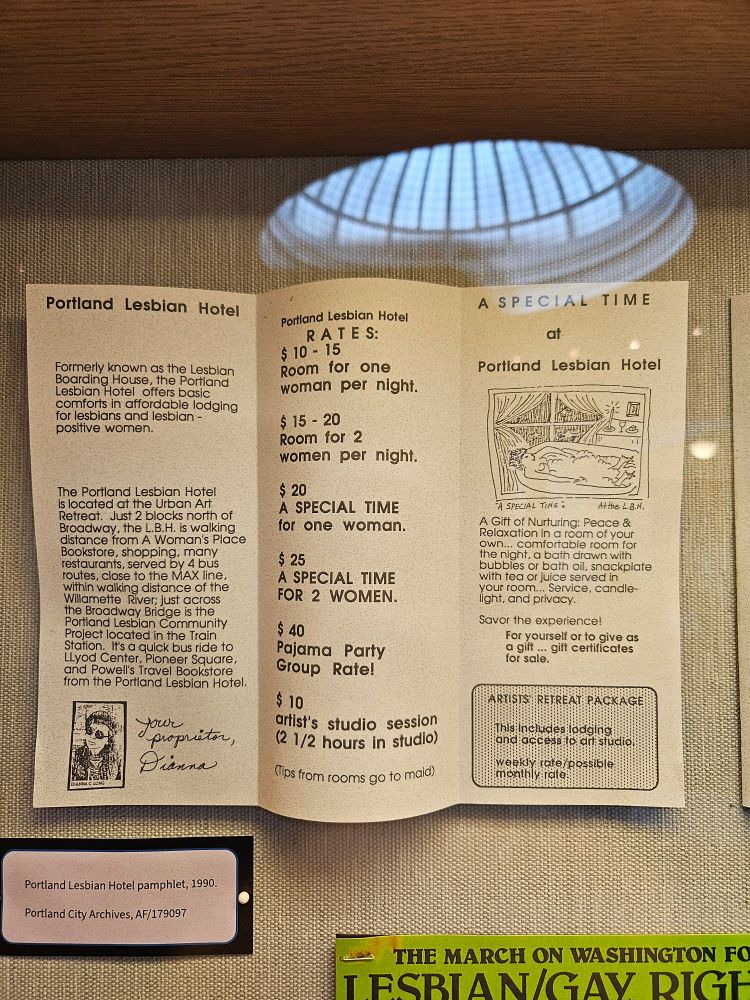 Portland Lesbian Hotel
Formerly known as the Lesbian
Boarding House, the Portland
Lesbian Hotel offers basic
comforts in affordable lodging
for lesbians and lesbian -
positive women.
The Portland Lesbian Hotel
is located at the Urban Art
Retreat. Just 2 blocks north of
Broadway, the L.B.H. is walking
distance from A Woman's Place
Bookstore, shopping, many
restaurants, served by 4 bus
routes, close to the MAX line,
within walking distance of the
Willamette River; just across
the Broadway Bridge is the
Portland Lesbian Community
Project located in the Train
Station. It's a quick bus ride to
LLyod Center, Pioneer Square,
and Powell's Travel Bookstore
from the Portland Lesbian Hotel.
your
proprietor,
Dianna
DIANNA C LONG
Portland Lesbian Hotel
RATES:
$ 10 - 15
Room for one
woman per night.
$ 15 - 20
Room for 2
women per night.
$ 20
A SPECIAL TIME
for one woman.
$ 25
A SPECIAL TIME
FOR 2 WOMEN.
$ 40
Pajama Party
Group Rate!
$ 10
artist's studio session
(2 1/2 hours in studio)
(Tips from rooms go to maid)
A SPECIAL TIME
at
Portland Lesbian Hotel
"A SPECIAL TIME"
At the L.B.H.
A Gift of Nurturing: Peace &
Relaxation in a room of your
own... comfortable room for
the night, a bath drawn with
bubbles or bath oil, snackplate
with tea or juice served in
your room... Service, candle-
light, and privacy.
Savor the experience!
For yourself or to give as
a gift ... gift certificates
for sale.
ARTISTS' RETREAT PACKAGE
This includes lodging
and access to art studio.
weekly rate/possible
monthly rate.
Portland Lesbian Hotel pamphlet, 1990.
Portland City Archives, AF/179097
THE MARCH ON WASHINGTON FO
LESBIAN/GAY RIGH